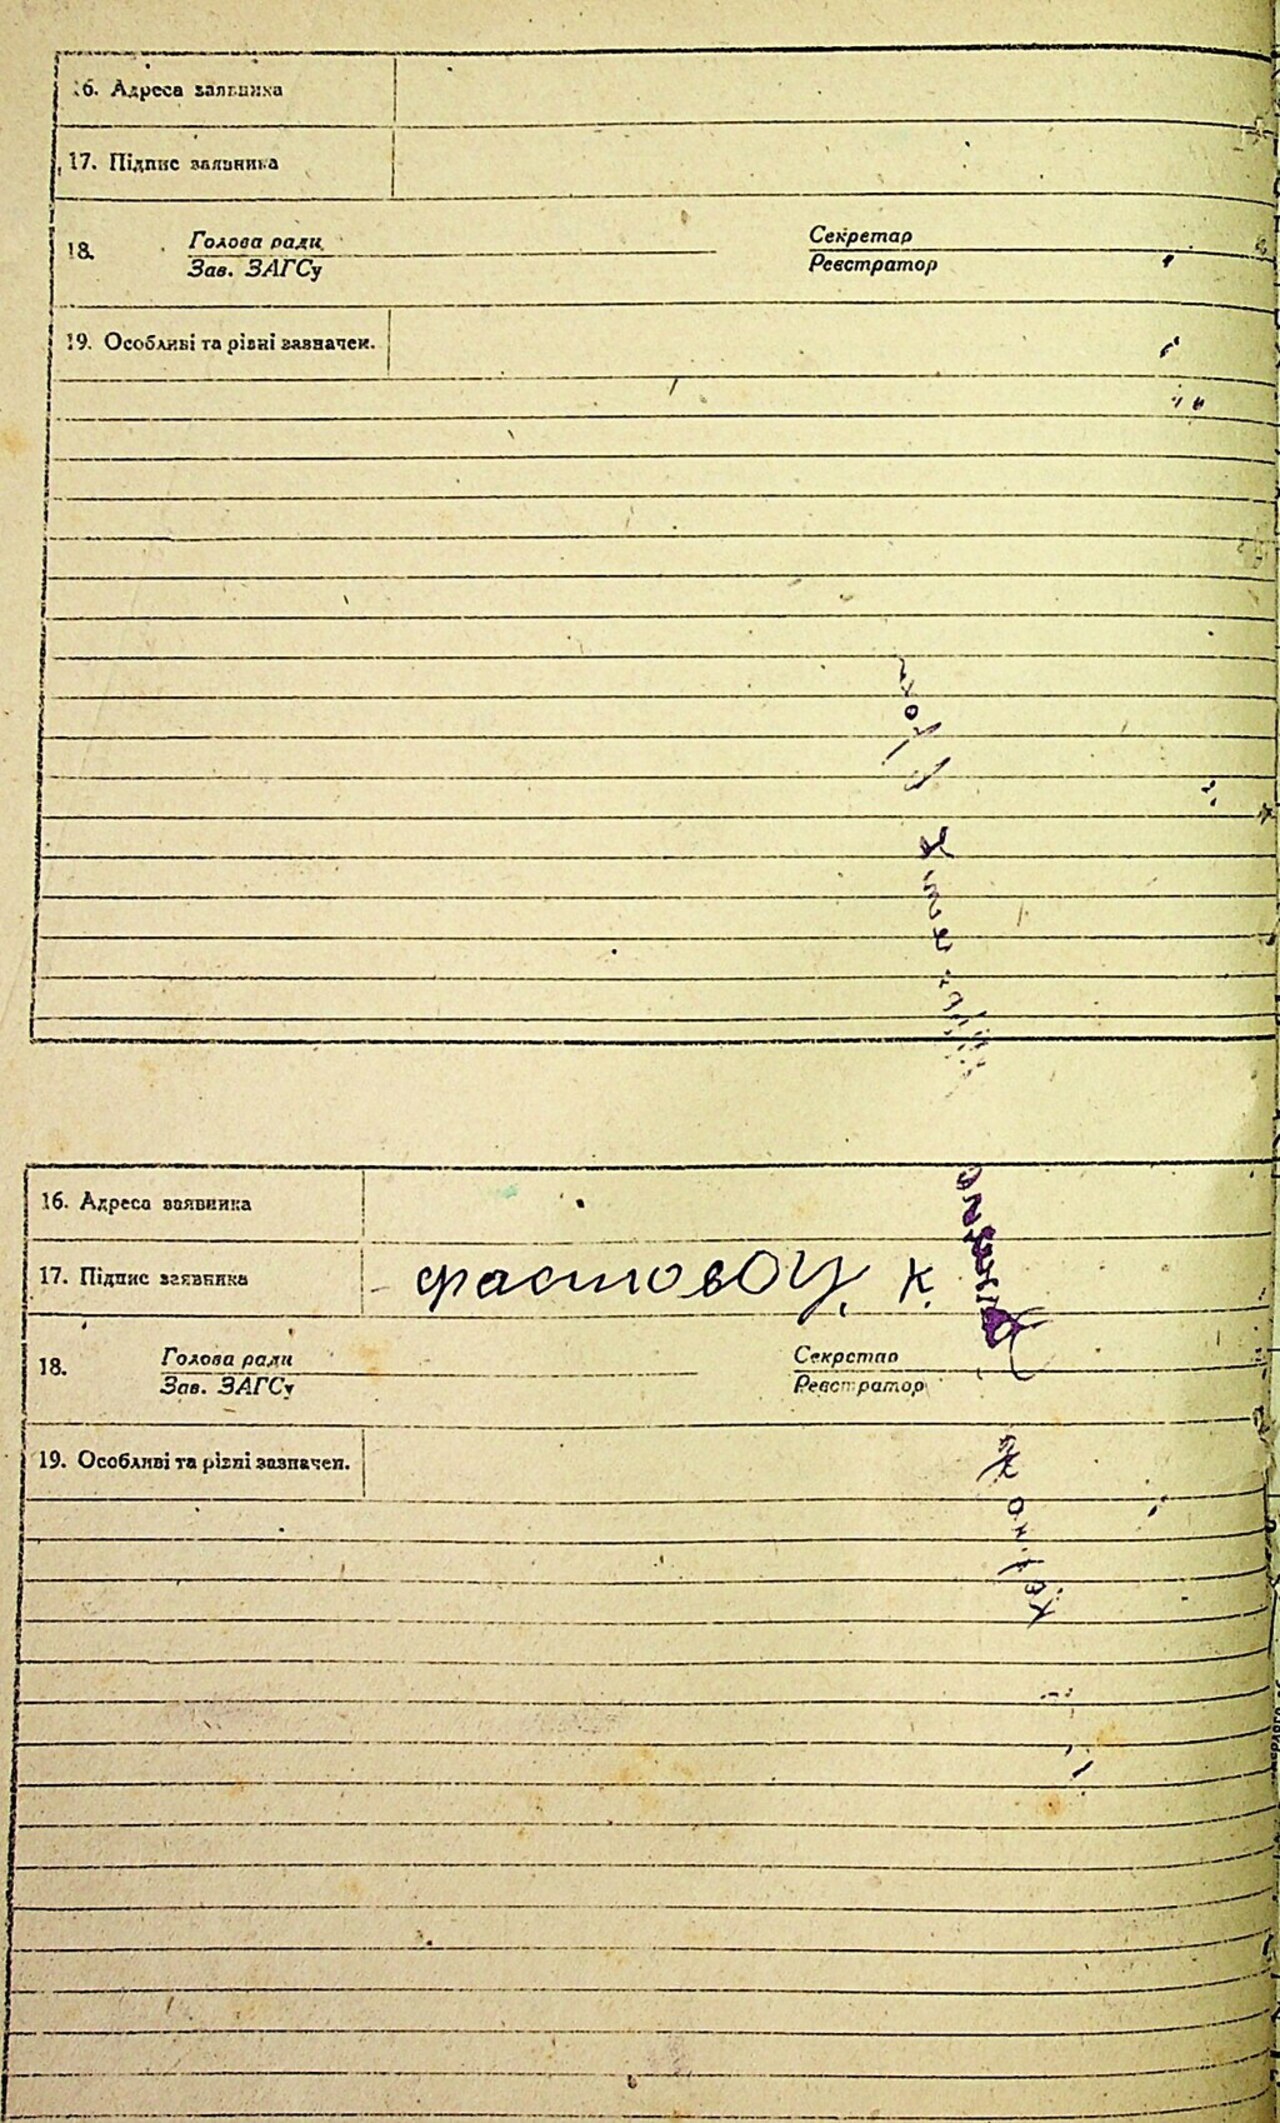 16. Адреса заявника
17. Підпис заявника
18. Голова ради Секретар
Зав. ЗАГСу Реєстратор
19. Особливі та різні зазначен.
16. Адреса заявника
17. Підпис заявника К.
18. Голова ради Секретар
Зав. ЗАГСу Реєстратор
19. Особливі та різні зазначен.